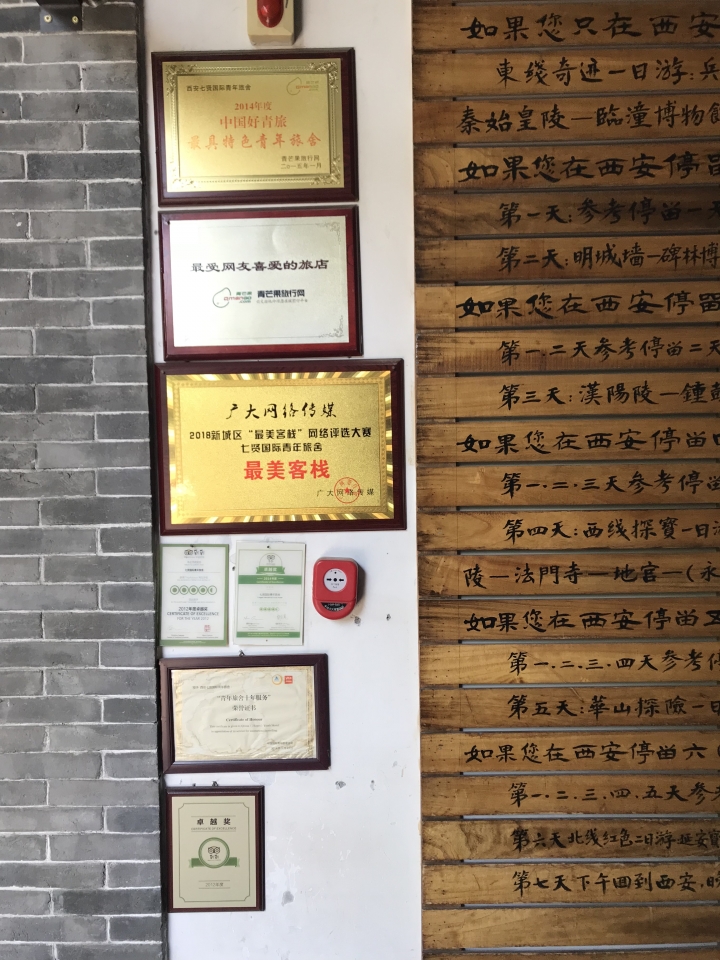 西安七贤国际青年旅舍
2014年度
中国好青旅
最具特色青年旅舍
青芒果旅行网
二〇一五年一月
最受网友喜爱的旅店
青芒果
青芒果旅行网
广大网络传媒
2018新城区“最美客栈”网络评选大赛
七贤国际青年旅舍
最美客栈
广大网络传媒
2012年度卓越奖
CERTIFICATE OF EXCELLENCE
“青年旅舍十年服务”
荣誉证书
Certificate of Honour
卓越奖
CERTIFICATE OF EXCELLENCE
2013年度
如果您只在西安
東綫奇迹一日游:兵
秦始皇陵—臨潼博物館
如果您在西安停留
第一天:参考停留一天
第二天:明城墙—碑林博
如果您在西安停留
第一.二天参考停留二天
第三天:漢陽陵—鍾
如果您在西安停留四
第一.二.三天参考停留
第四天:西线探寶一日游
陵—法門寺—地宫—(永
如果您在西安停留五
第一.二.三.四天参考停
第五天:華山探險一日
如果您在西安停留六
第一.二.三.四.五天参考
第六天北线红色二日游:延安寶
第七天下午回到西安.晚